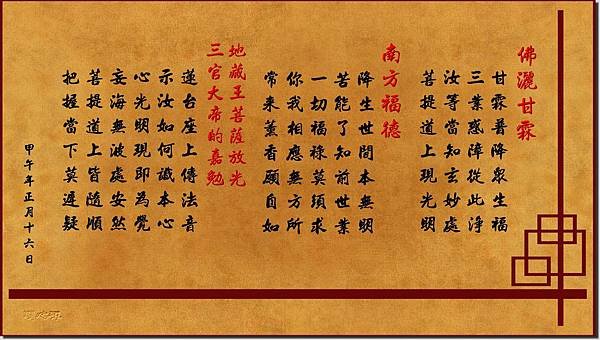 佛灑甘霖
甘霖普降眾生福
三業惑障從此淨
汝等當知玄妙處
菩提道上現光明
南方福德
降生世間本無明
苦能了知前世業
一切福祿莫須求
你我相應無方所
常来薰香願自如
地藏王菩薩放光
三官大帝的嘉勉
蓮台座上傳法音
示汝如何識本心
心光明現即為覺
妄海無波處安然
菩提道上皆隨順
把握當下莫遲疑
甲午年正月十六日